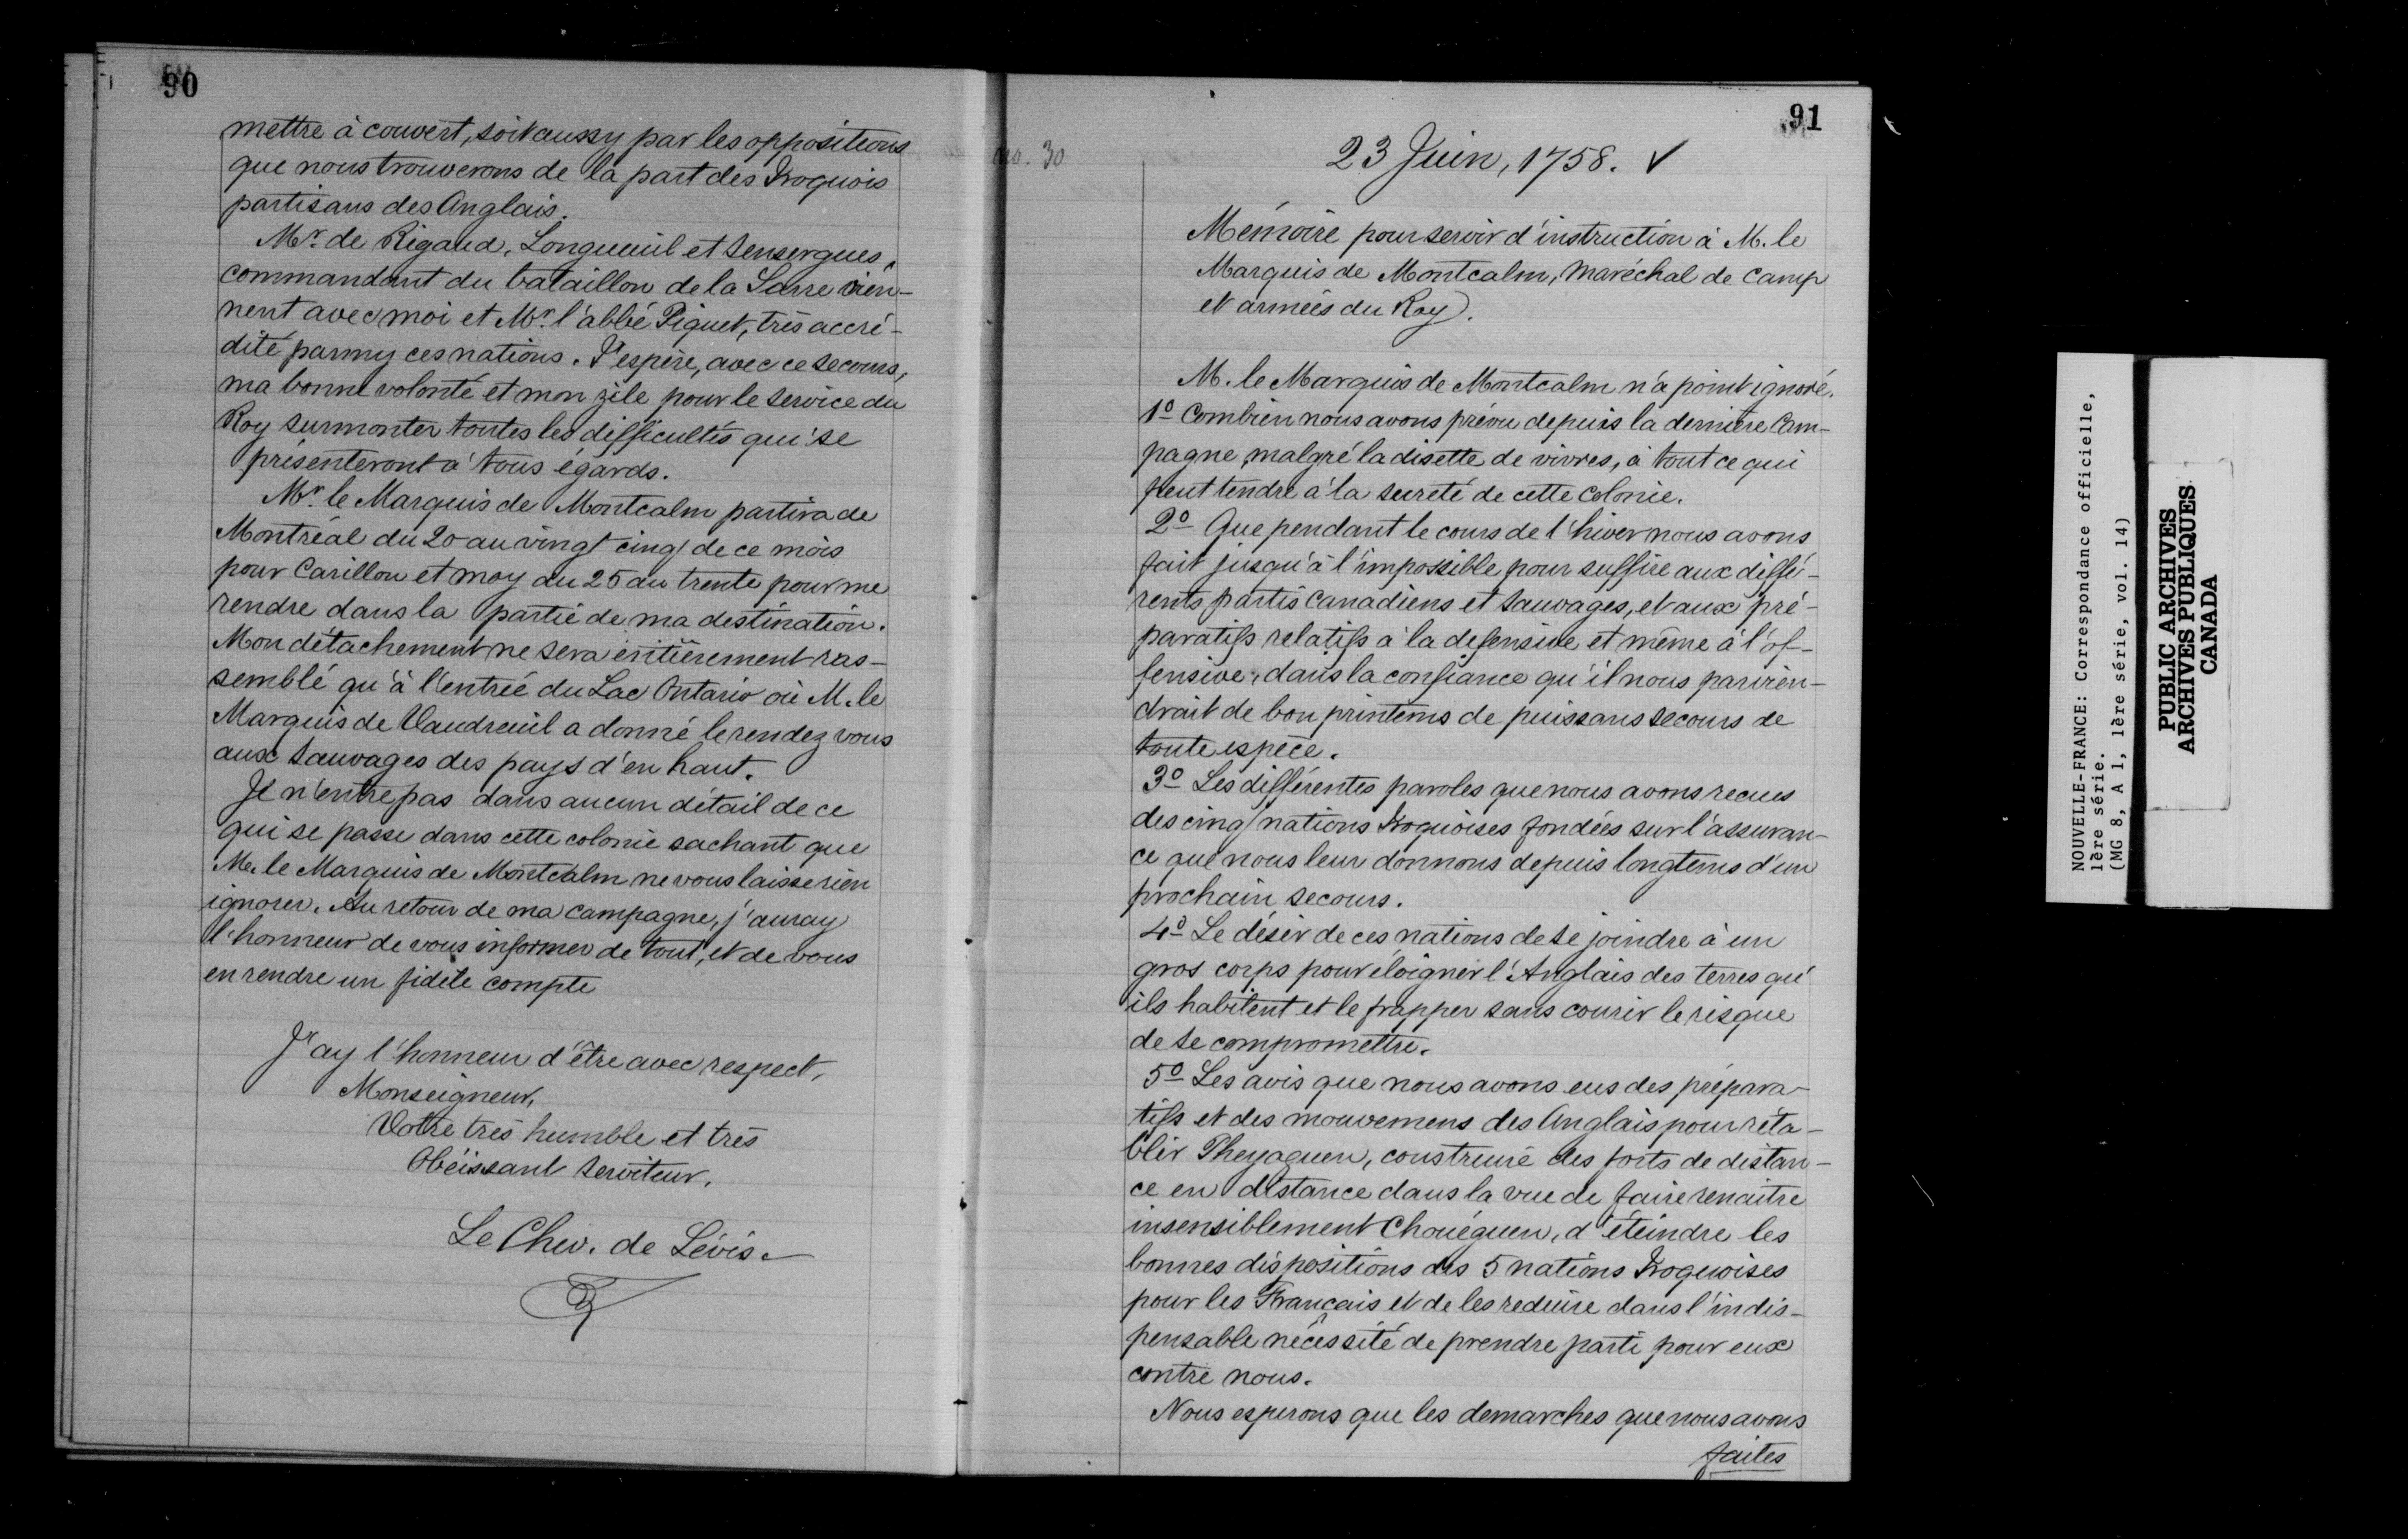 90
mettre à couvert, soit aussy par les oppositions
que nous trouverons de la part des Iroquois
partisans des Anglais.
Mr. de Rigaud, Longueuil et Senzergues,
commandant du bataillon de la Sarre vien-
nent avec moi et Mr. l'abbé Piquet, très accré-
dité parmy ces nations. J'espère, avec ce secours,
ma bonne volonté et mon zèle pour le service du
Roy surmonter toutes les difficultés qui se
présenteront à tous égards.
Mr. le Marquis de Montcalm partira de
Montréal du 20 au vingt cinq de ce mois
pour Carillon et moy du 25 au trente pour me
rendre dans la partie de ma destination.
Mon détachement ne sera entièrement ras-
semblé qu'à l'entrée du Lac Ontario où M. le
Marquis de Vaudreuil a donné le rendez vous
aux sauvages des pays d'en haut.
Je n'entre pas dans aucun détail de ce
qui se passe dans cette colonie sachant que
M. le Marquis de Montcalm ne vous laisse rien
ignorer. Au retour de ma campagne, j'auray
l'honneur de vous informer de tout, et de vous
en rendre un fidèle compte
J'ay l'honneur d'être avec respect,
Monseigneur,
Votre très humble et très
Obéissant serviteur.
Le Chev. de Lévis.
91
no. 30
23 Juin, 1758. ✓
Mémoire pour servir d'instruction à M. le
Marquis de Montcalm, Maréchal de Camp
et armées du Roy.
M. le Marquis de Montcalm n'a point ignoré.
1o Combien nous avons prévu depuis la dernière Cam-
pagne, malgré la disette de vivres, à tout ce qui
peut tendre à la sureté de cette Colonie.
2o Que pendant le cours de l'hiver nous avons
fait jusqu'à l'impossible pour suffire aux diffé-
rents partis Canadiens et Sauvages, et aux pré-
paratifs relatifs à la defensive et même à l'of-
fensive, dans la confiance qu'il nous parvien-
drait de bon printems de puissans secours de
toute espèce.
3o Les différentes paroles que nous avons recues
des cinq nations Iroquoises fondées sur l'assuran-
ce que nous leur donnons depuis longtems d'un
prochain secours.
4o Le désir de ces nations de se joindre à un
gros corps pour éloigner l'Anglais des terres qu'
ils habitent et le frapper sans courir le risque
de se compromettre.
5o Les avis que nous avons eus des prépara-
tifs et des mouvemens des Anglais pour réta-
blir Theyaguen, construire des forts de distan-
ce en distance dans la vue de faire renaitre
insensiblement Chouéguen, d'éteindre les
bonnes dispositions des 5 nations Iroquoises
pour les Francais et de les reduire dans l'indis-
pensable nécessité de prendre parti pour eux
contre nous.
Nous esperons que les demarches que nous avons
faites
NOUVELLE-FRANCE: Correspondance officielle,
1ère série.
(MG 8, A 1, 1ère série, vol. 14)
PUBLIC ARCHIVES
ARCHIVES PUBLIQUES
CANADA